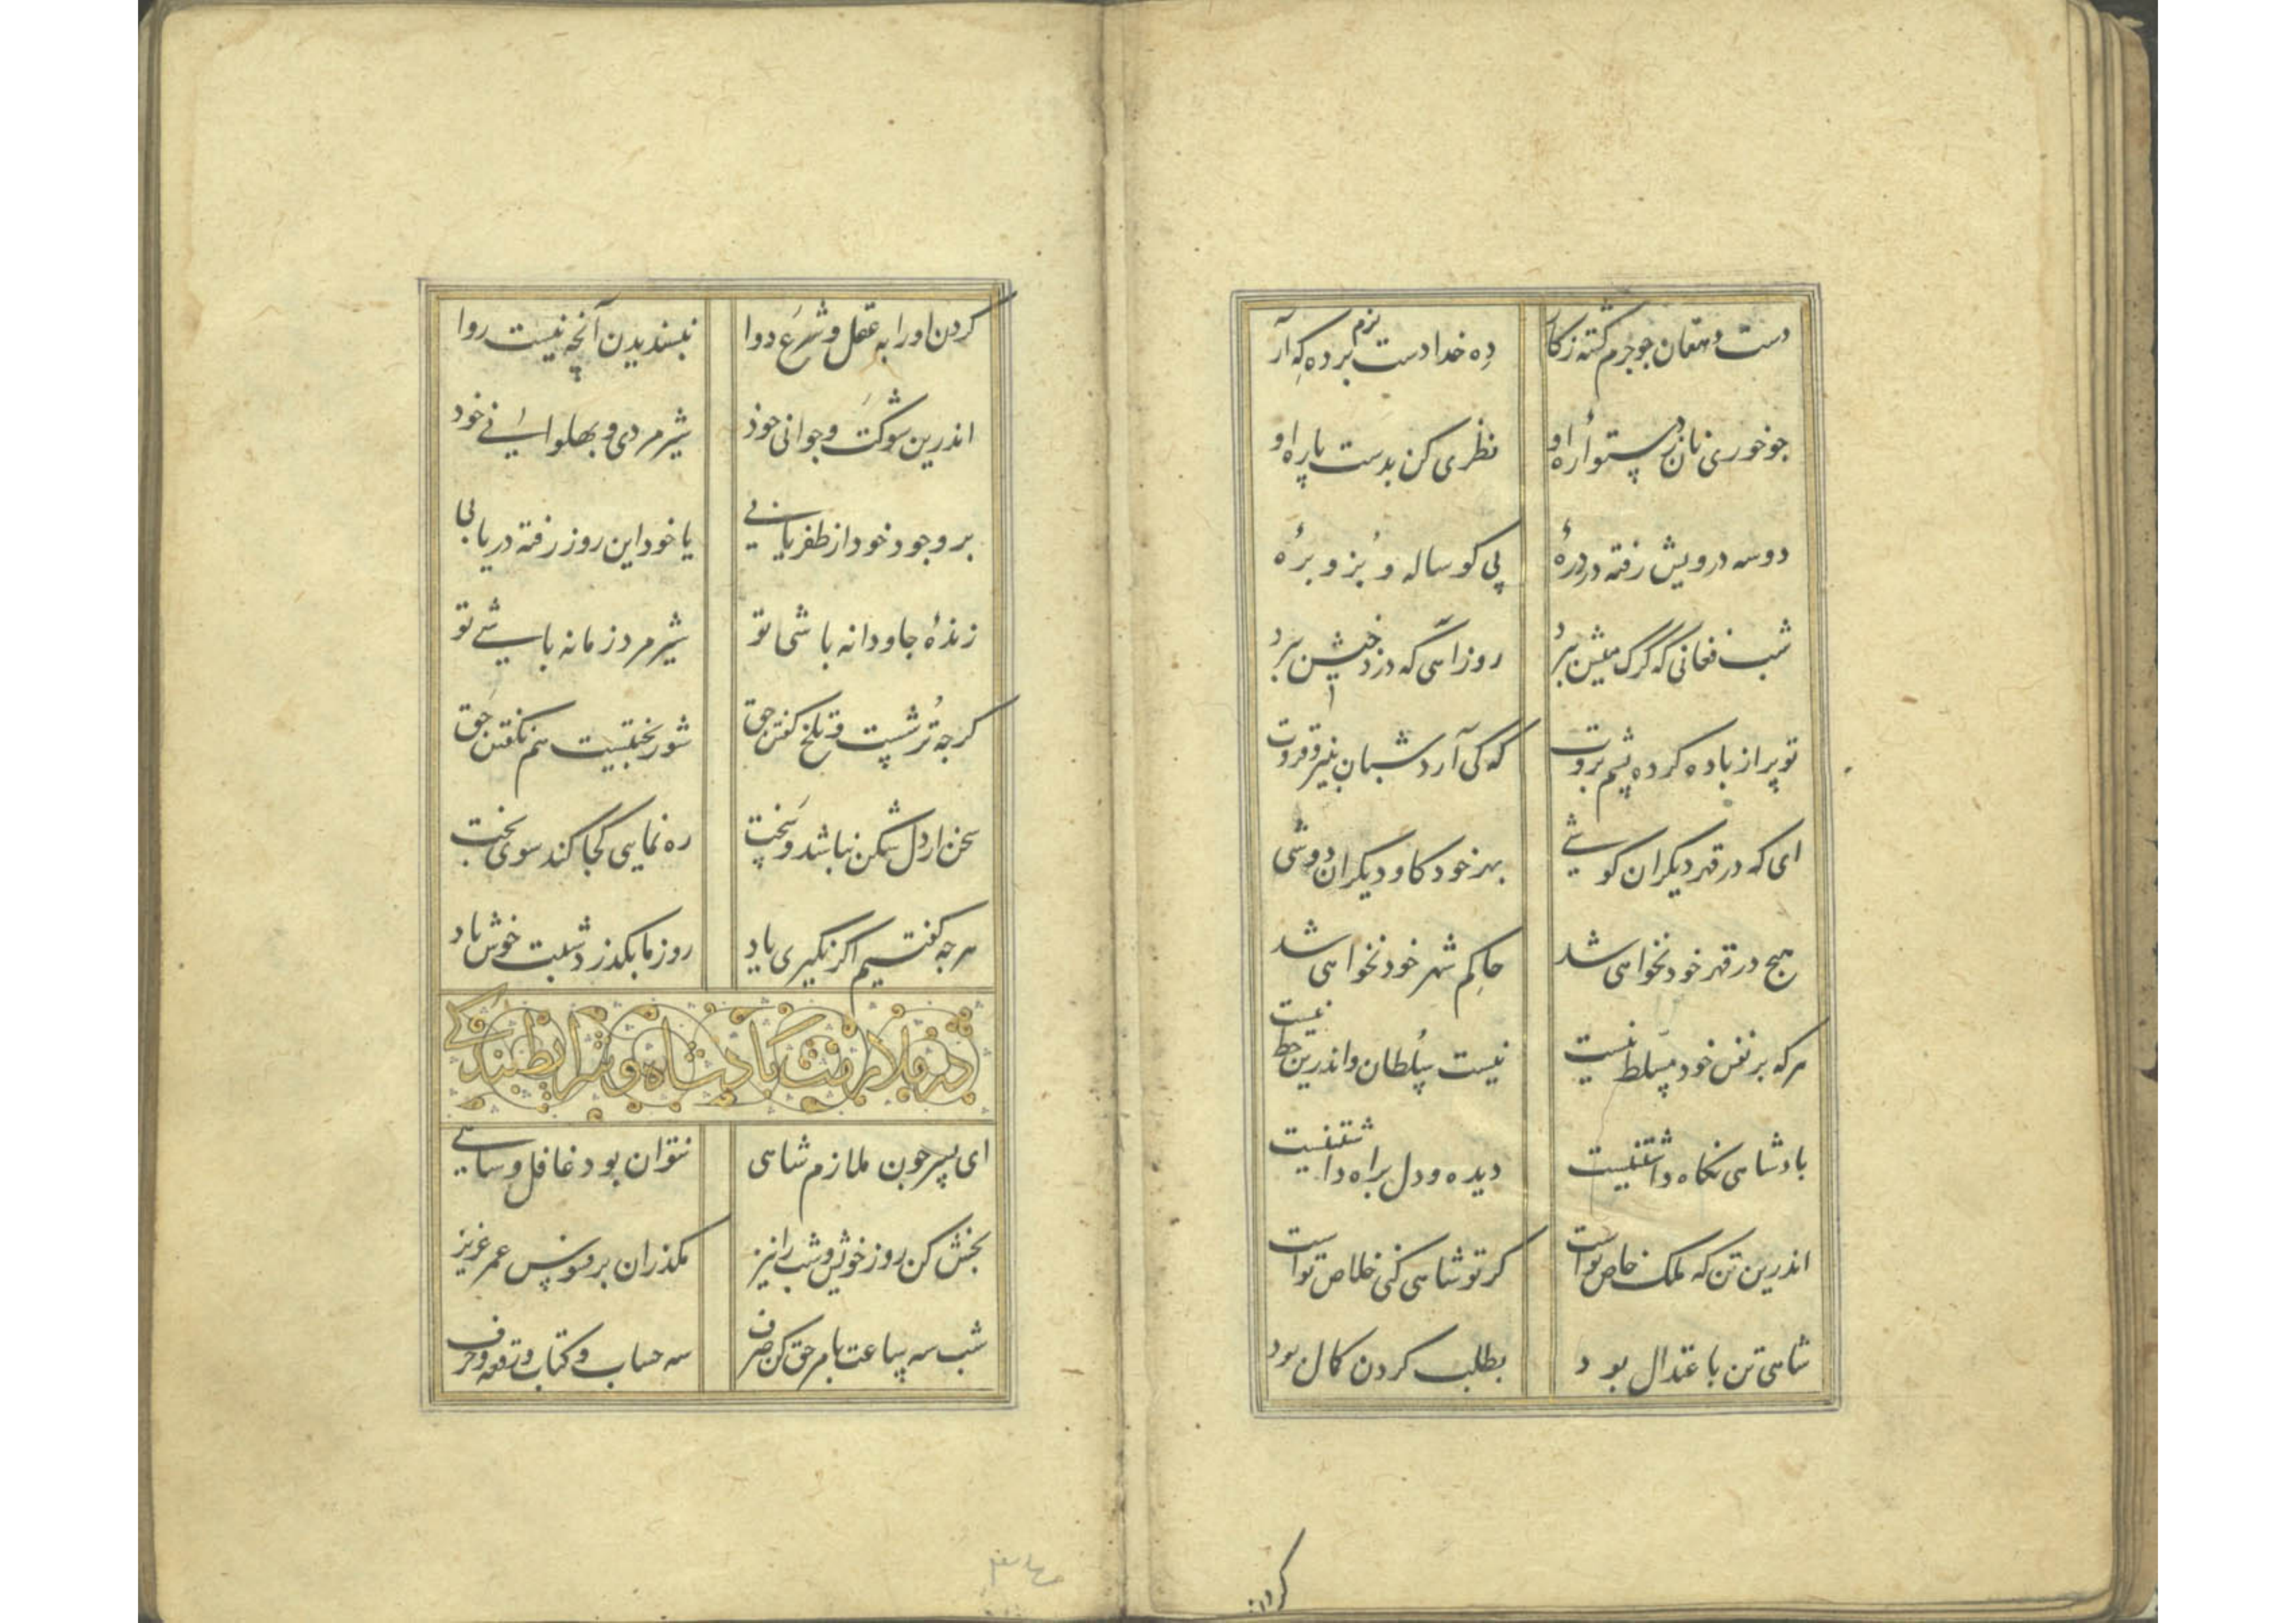 دست دهقان جو جرم گشته زکار
ده خدا دست بزم برده که آر
جو خوری نان ز دستواره او
نظری کن بدست پاره او
دو سه درویش رفته در درهٔ
پی کوساله و بز و برهٔ
شب فغانی که گرک میش ببرد
روز آهی که دزد خیش ببرد
تو پر از باده کرده پشم بروت
که کی آرد شبان پنیر و قروت
ای که در قهر دیگران کوشی
بهر خود کاو دیگران دوشی
هیج در قهر خود نخواهی شد
حاکم شهر خود نخواهی شد
هرکه بر نفس خود مسلط نیست
نیست سلطان و اندرین خط نیست
بادشاهی نکاه داشتنیست
دیده و دل براه داشتنیست
اندرین تن که ملک خاص تو است
کر تو شاهی کنی خلاص تو است
شاهی تن باعتدال بود
بطلب کردن کمال بود
کردن
کردن اورا به عقل و شرع دوا
نبسندیدن آنچه نیست روا
اندرین شوکت و جوانی خوذ
شیر مردی و بهلوانی خود
بر وجود خود ار ظفر یابی
یا خود این روز رفته دریابی
زندهٔ جاودانه باشی تو
شیر مرد زمانه باشی تو
کرجه ترشست و تلخ کفتن حق
شور بختیست هم نکفتن حق
سخن ار دل شکن نباشد و سخت
ره نمایی کجا کند سوی بخت
هرجه کفتیم اکر نکیری یاد
روز ما بکذرد شبت خوش باد
در ملازمت بادشاه و شرایط بندگی
ای بسر جون ملازم شاهی
نتوان بود غافل و ساهی
بخش کن روز خویش و شب را نیز
مکذران بر فسوس عمر عزیز
شب سه ساعت بامر حق کن صرف
سه حساب و کتاب و رقعه و حرف